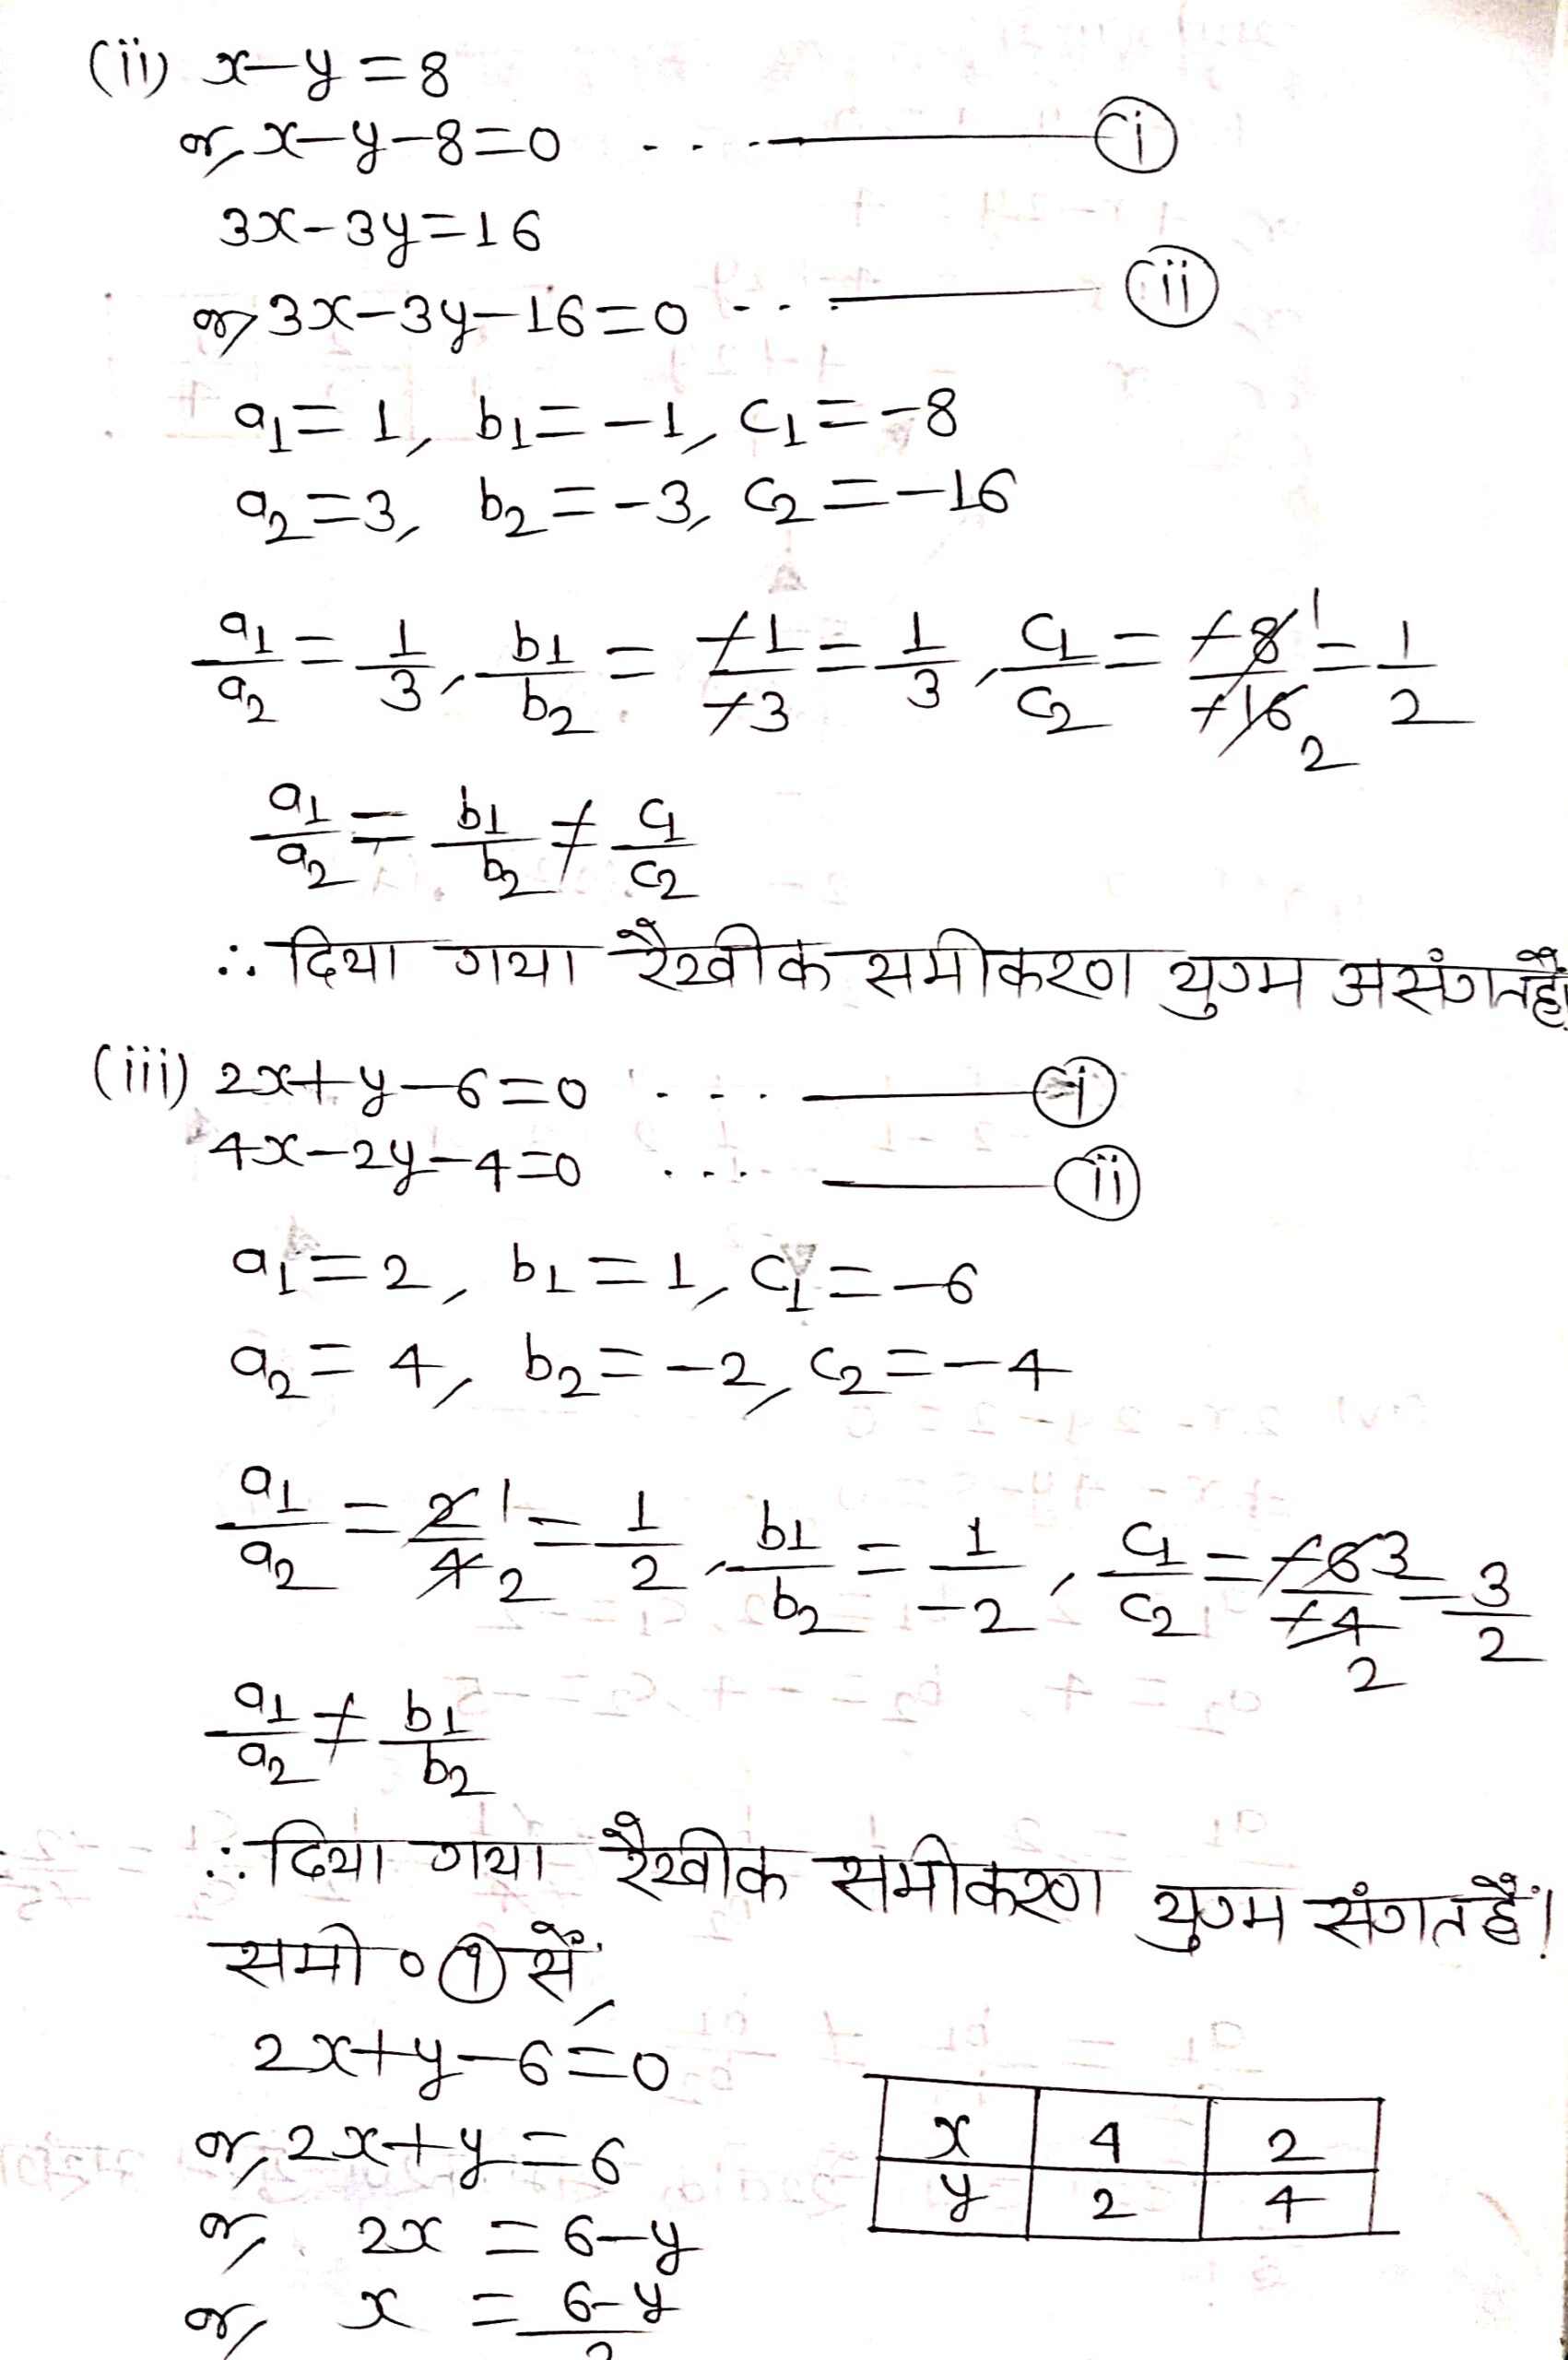 (ii) x-y=8
or, x-y-8=0 ... (i)
3x-3y=16
or, 3x-3y-16=0 ... (ii)
a₁=1, b₁=-1, c₁=-8
a₂=3, b₂=-3, c₂=-16
a₁/a₂=1/3, b₁/b₂=-1/-3=1/3, c₁/c₂=-8/-16=1/2
a₁/a₂=b₁/b₂≠c₁/c₂
∴ दिया गया रैखीक समीकरण युग्म असंगत हैं।
(iii) 2x+y-6=0 ... (i)
4x-2y-4=0 ... (ii)
a₁=2, b₁=1, c₁=-6
a₂=4, b₂=-2, c₂=-4
a₁/a₂=2/4=1/2, b₁/b₂=1/-2, c₁/c₂=-6/-4=3/2
a₁/a₂≠b₁/b₂
∴ दिया गया रैखीक समीकरण युग्म संगत हैं।
समी० (१) सें,
2x+y-6=0
or, 2x+y=6
or, 2x=6-y
or, x=6-y/2
x 4 2
y 2 4